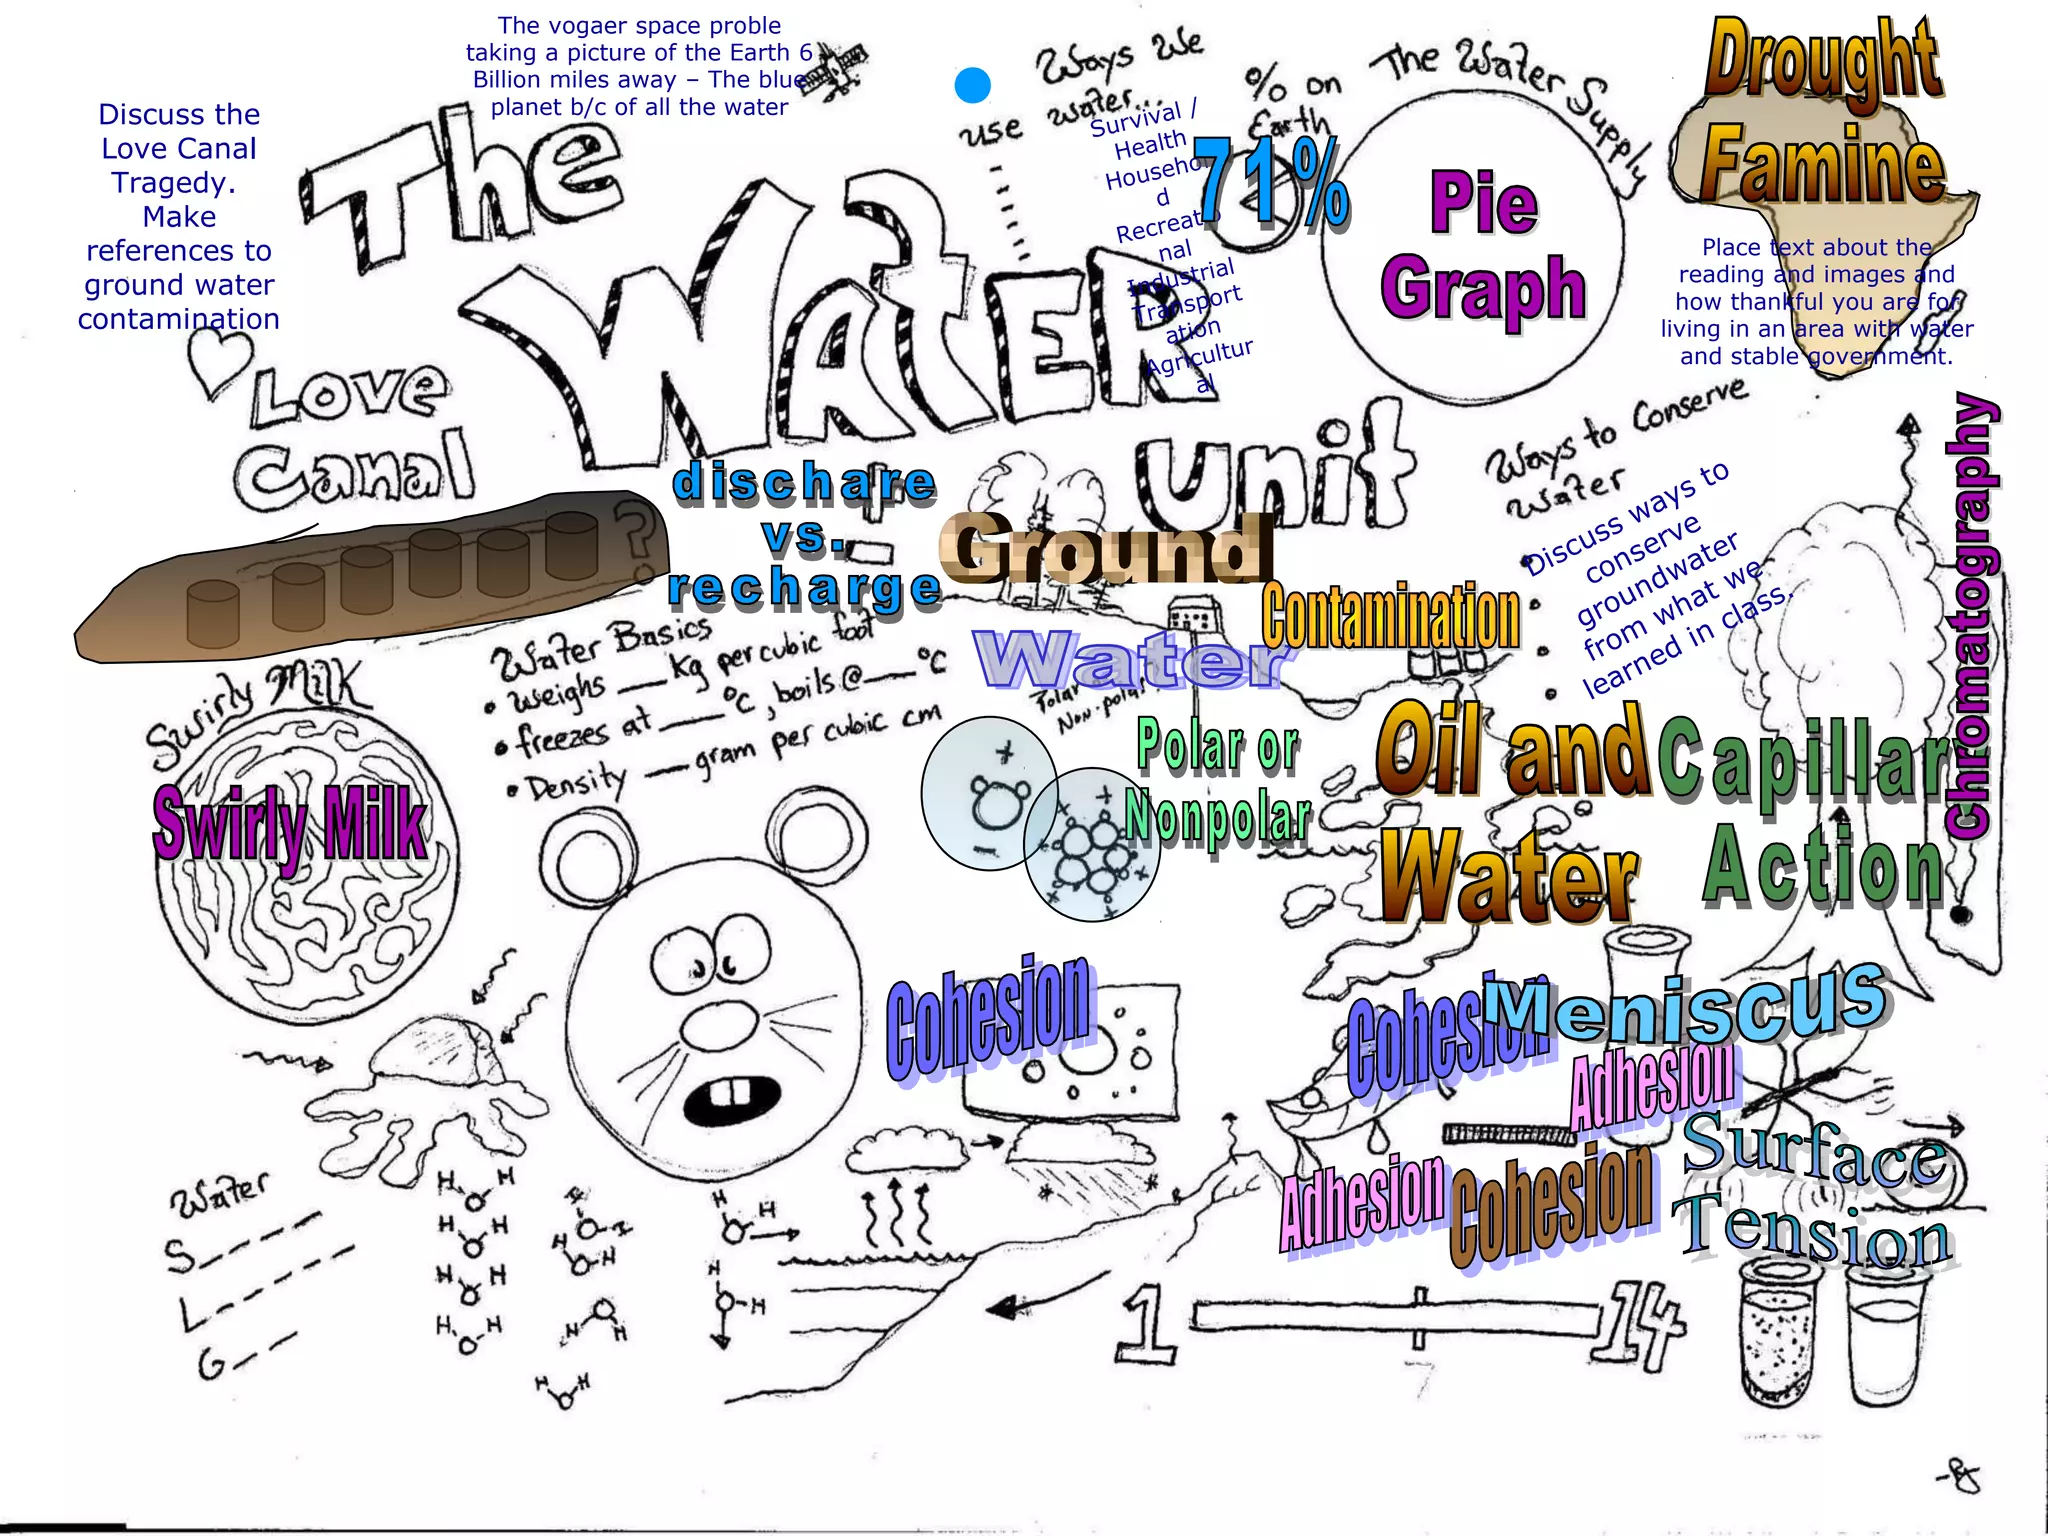 The vogaer space proble
taking a picture of the Earth 6
Billion miles away – The blue
planet b/c of all the water
Discuss the
Love Canal
Tragedy.
Make
references to
ground water
contamination
The
Water
Unit
Ways We
use water...
Survival /
Health
Househol
d
Recreatio
nal
Industrial
Transport
ation
Agricultur
al
% on
Earth
71%
The Water Supply
Pie
Graph
Drought
Famine
Place text about the
reading and images and
how thankful you are for
living in an area with water
and stable government.
Love
Canal
?
dischare
vs.
recharge
Ground
Water
Contamination
Ways to Conserve
Water
Discuss ways to
conserve
groundwater
from what we
learned in class.
Chromatography
Swirly Milk
Swirly Milk
Water Basics
• weighs __ kg per cubic foot
• freezes at ___ °C, boils @ ___ °C
• Density __ gram per cubic cm
Polar
Non-polar
+
-
Polar or
Nonpolar
Oil and
Water
Capillary
Action
Cohesion
Cohesion
Meniscus
Adhesion
Surface
Tension
Adhesion
Cohesion
Water
S_ _ _ _ _
L_ _ _ _ _
G_ _
H H
H H
H H
H H
H H
H H
H H
H H
H H
H H
1
7
14